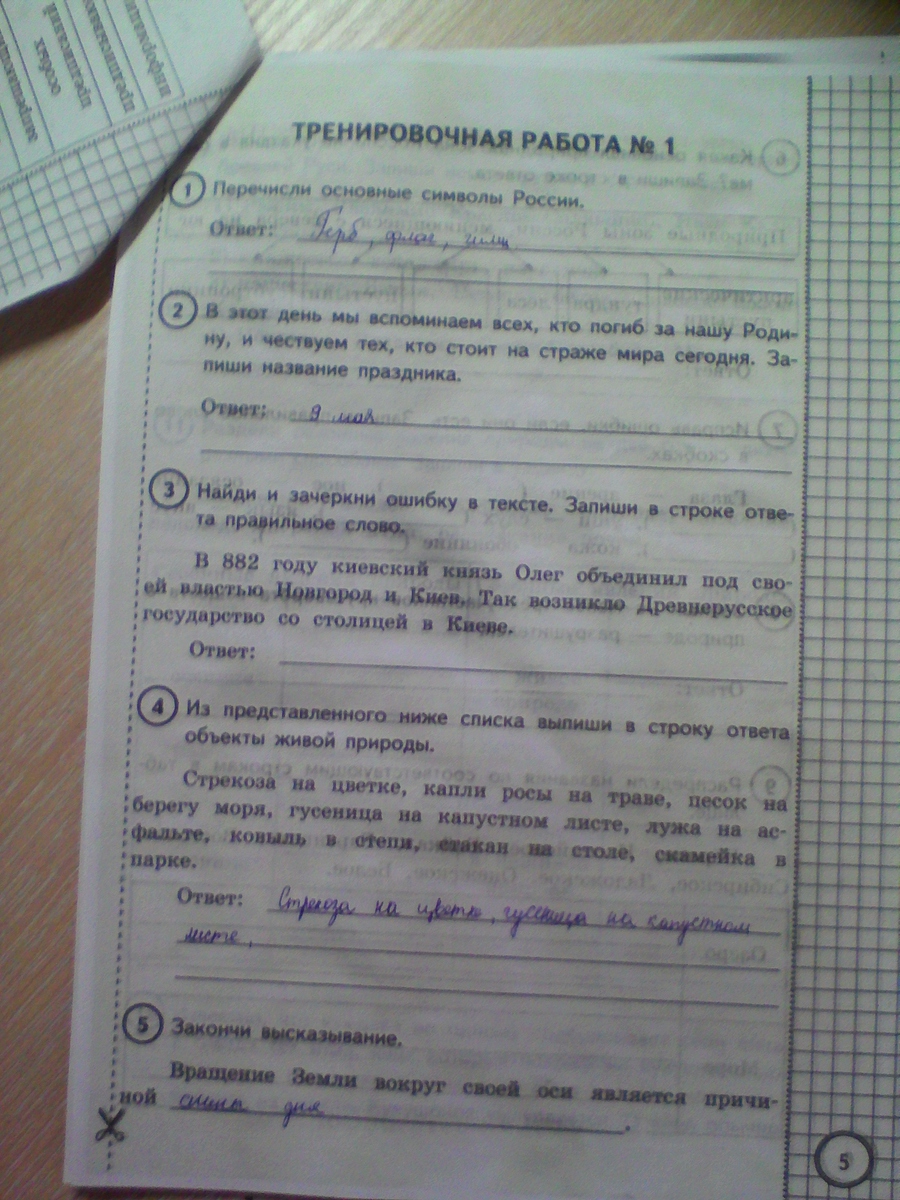 ТРЕНИРОВОЧНАЯ РАБОТА № 1
1 Перечисли основные символы России.
Ответ: Герб, флаг, гимн
2 В этот день мы вспоминаем всех, кто погиб за нашу Роди-
ну, и чествуем тех, кто стоит на страже мира сегодня. За-
пиши название праздника.
Ответ: 9 мая
3 Найди и зачеркни ошибку в тексте. Запиши в строке отве-
та правильное слово.
В 882 году киевский князь Олег объединил под сво-
ей властью Новгород и Киев. Так возникло Древнерусское
государство со столицей в Киеве.
Ответ:
4 Из представленного ниже списка выпиши в строку ответа
объекты живой природы.
Стрекоза на цветке, капли росы на траве, песок на
берегу моря, гусеница на капустном листе, лужа на ас-
фальте, ковыль в степи, стакан на столе, скамейка в
парке.
Ответ: Стрекоза на цветке, гусеница на капустном
листе,
5 Закончи высказывание.
Вращение Земли вокруг своей оси является причи-
ной смены дня
5